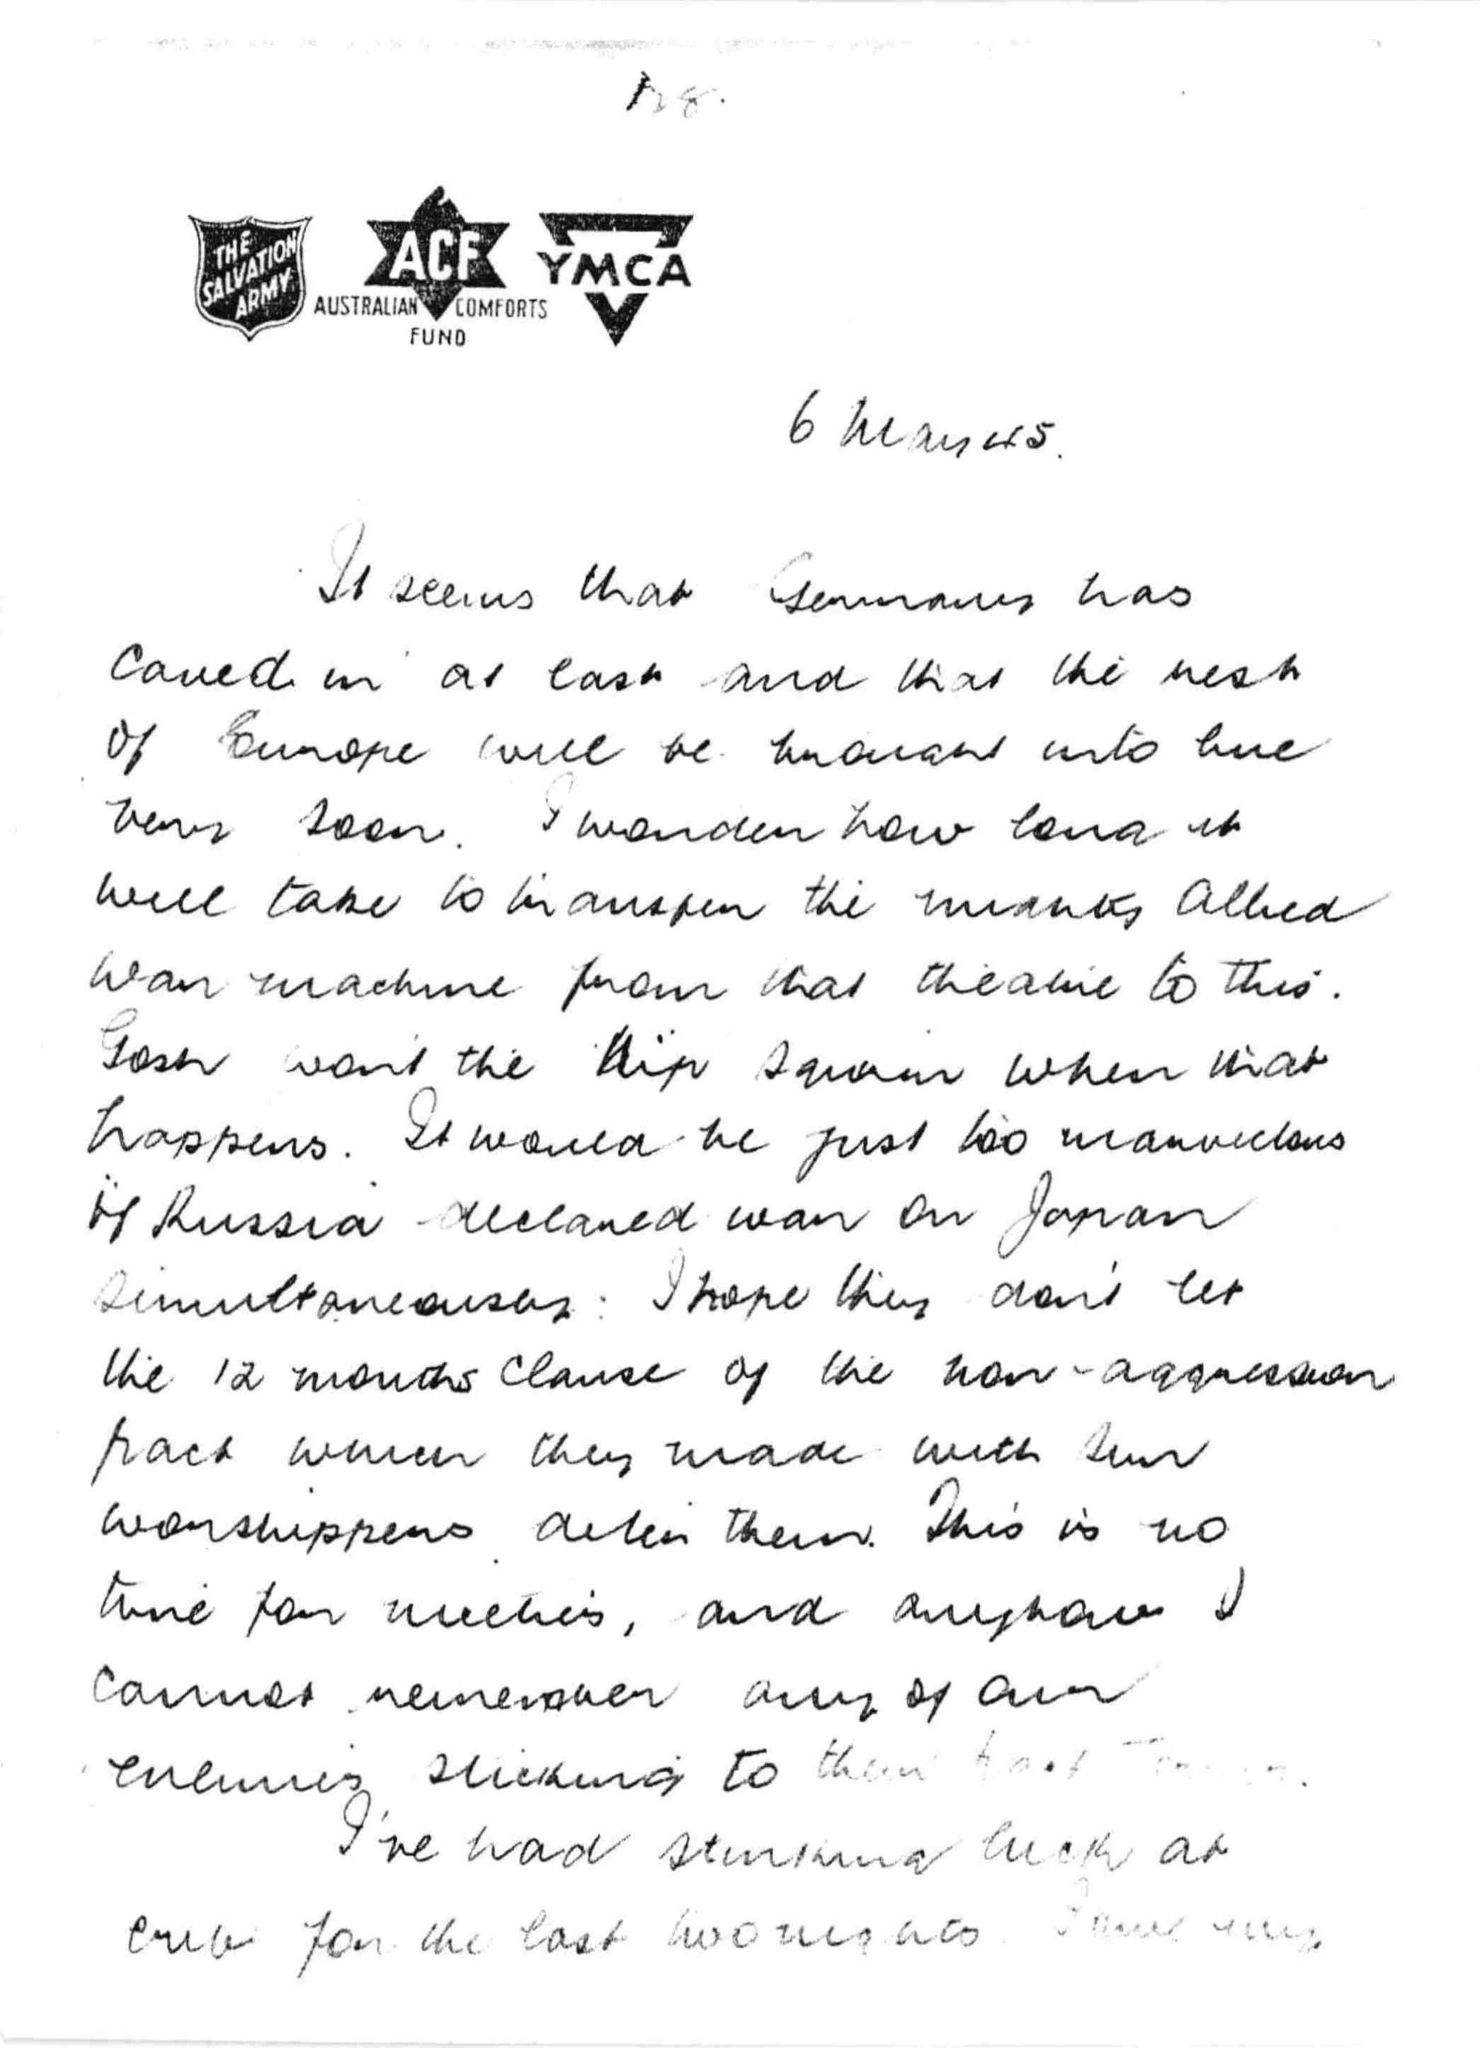 THE
SALVATION
ARMY
ACF
AUSTRALIAN COMFORTS
FUND
YMCA
6 May 45.
It seems that Germany has
caved in at last and that the rest
of Europe will be brought into line
very soon. I wonder how long it
will take to transfer the mighty Allied
war machine from that theatre to this.
Gosh won't the Nip squirm when that
happens. It would be just too marvellous
if Russia declared war on Japan
simultaneously: I hope they don't let
the 12 months clause of the non-aggression
pact which they made with Sun
worshippers deter them. This is no
time for niceties, and anyhow I
cannot remember any of our
enemies sticking to their pact
I've had stinking luck at
crib for the last two nights. my